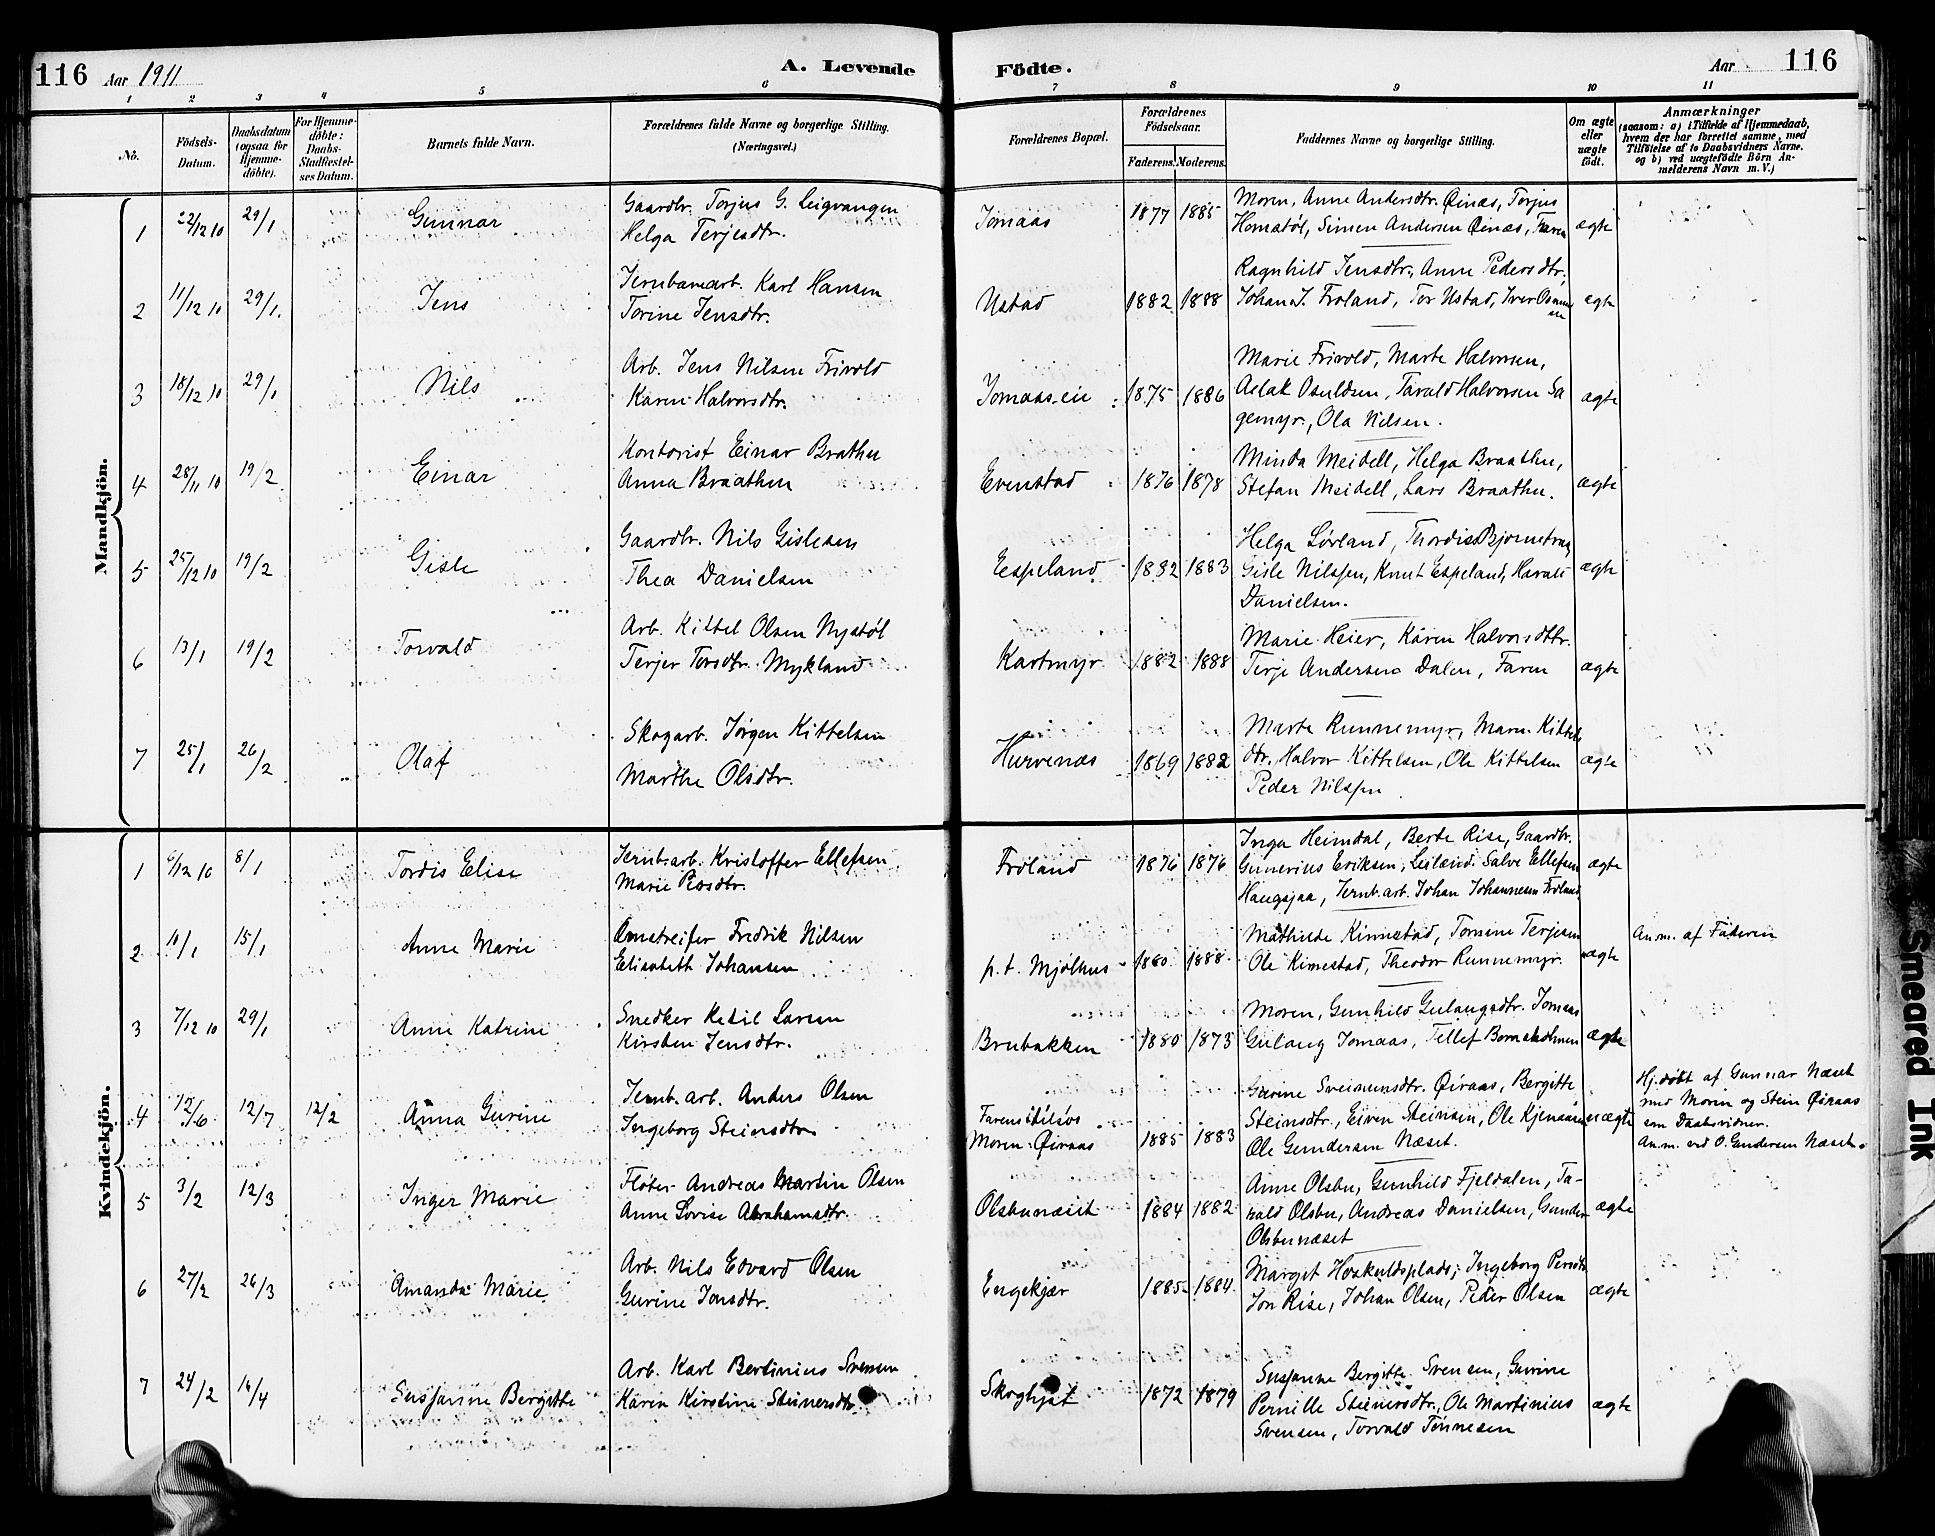 116 Aar 1911 A. Levende Födte. Aar 116
1 2 3 4 5 6 7 8 9 10 11
No.
Födsels-Datum.
Daabsdatum (ogsaa for Hjemme-döbte).
For Hjemme-döbte: Daabs-Stadfæstel-ses Datum.
Barnets fulde Navn.
Forældrenes fulde Navne og borgerlige Stilling.
(Næringsvei.)
Forældrenes Bopæl.
Forældrenes Födselsaar.
Faderens. Moderens.
Faddernes Navne og borgerlige Stilling.
Om ægte eller uægte födt.
Anmærkninger
(saasom: a) i Tilfælde af Hjemmedaab,
hvem der har forrettet samme, med
Tilföielse af to Daabsvidners Navne.
og b) ved uægtefödte Börn An-
melderens Navn m. V.)
Mandkjön.
1 22/12 10 29/1 Gunnar
Gaardbr. Torjus G. Leigvangen
Helga Terjesdtr.
Jomaas 1877 1885
Moren, Anne Andersdtr. Øinæs, Torjus
Homstøl, Simen Andersen Øinæs, Faren
ægte
2 11/12 10 29/1. Jens
Jernbanearb. Karl Hansen
Torine Jensdtr.
Ustad 1882 1888
Ragnhild Jensdtr., Anne Pedersdtr.
Johan J. Froland, Tor Ustad, Iver
ægte
3 18/12 10 29/1 Nils
Arb. Jens Nilsen Frivold
Karen Halvorsdtr.
Jomaas-eie 1875 1886
Marie Frivold, Marte Halvorsen,
Aslak Osuldsen, Tarald Halvorsen Sa
gemyr, Ola Nilsen.
ægte
4 28/11 10 19/2 Einar
Kontorist Einar Brathen
Anna Braathen
Evenstad 1876 1878
Minda Meidell, Helga Braathen,
Stefan Meidell, Lars Braathen.
ægte
5 25/12 10 19/2 Gisle
Gaardbr. Nils Gislesen
Thea Danielsen
Espeland 1882 1883
Helga Løvland, Thordis
Gisle Nilssen, Knut Espeland, Harald
Danielsen.
ægte
6 13/1 19/2 Torvald
Arb. Kittel Olsen Nystøl
Terjer Torsdtr. Mykland
Kartmyr 1882 1888
Marie Heier, Karen Halvorsdtr.
Terje Andersens Dalen, Faren
ægte
7 25/1 26/2 Olaf
Skogarb. Jørgen Kittelsen
Marthe Olsdtr.
Hurvenæs 1869 1882
Marte Runnemyr, Maren Kittels
dtr., Halvor Kittelsen, Ole Kittelsen
Peder Nilssen.
ægte
Kvindekjön.
1 6/12 10 8/1 Tordis Elise
Jernb.arb. Kristoffer Ellefsen
Marie
Froland 1876 1876
Inga Heimdal, Berte Rise, Gaardbr.
Gunerius Eriksen, Leilænd. Salve Ellefsen
Haugsjaa, Jernb.arb. Johan Johannesen Froland
ægte
2 10/1 15/1 Anne Marie
Omstreifer Fredrik Nilsen
Elisabeth Johansen
p.t. Mjølhus 1880 1888
Mathilde Kinnestad, Tomine Terjesen
Ole Kinnestad, Theodor Runnemyr.
uægte
Anm. af Faderen
3 7/12 10 29/1 Anne Katrine
Snedker Ketil Larsen
Kirsten Jensdtr.
Brubakken 1880 1873
Moren, Gunhild Gulaugsdtr. Jomaas
Gulaug Jomaas, Tellef Bornsholmen
ægte
4 12/6 12/7 12/2 Anna Gurine
Jernb. arb. Anders Olsen
Ingeborg Steinersdtr.
Farens:
Moren: Øiraas 1885 1883
Gurine Sveinunsdtr. Øiraas, Bergitte
Steinsdtr., Eiven Steinsen, Ole
Ole Gundersen Næset.
uægte
Hj. døbt af Gunnar Næset
med Moren og Stein Øiraas
som Daabsvidner.
Anm. ved O. Gundersen Næset.
5 3/2 12/3 Inger Marie
Fløter Andreas Martin Olsen
Anne Lovise Abrahamsdtr.
Olsbunæset 1884 1882
Anne Olsbu, Gunhild Fjeldalen, Ta-
rald Olsbu, Andreas Danielsen, Gunder
Olsbunæset
ægte
6 27/2 26/3 Amanda Marie
Arb. Nils Edvard Olsen
Gurine Jonsdtr.
Engekjær 1885 1884
Margit Høskuldsplads, Ingeborg Persdtr
Jon Rise, Johan Olsen, Peder Olsen
ægte
7 24/2 16/4 Susjanne Bergitte
Arb. Karl Bertinius Svensen
Karen Kirstine Steinersdtr
Skoghjat 1872 1879
Susjanne Bergitte Svensen, Gurine
Pernille Steinersdtr., Ole Martinius
Svensen, Torvald Tønnesen
ægte
Smeared Ink